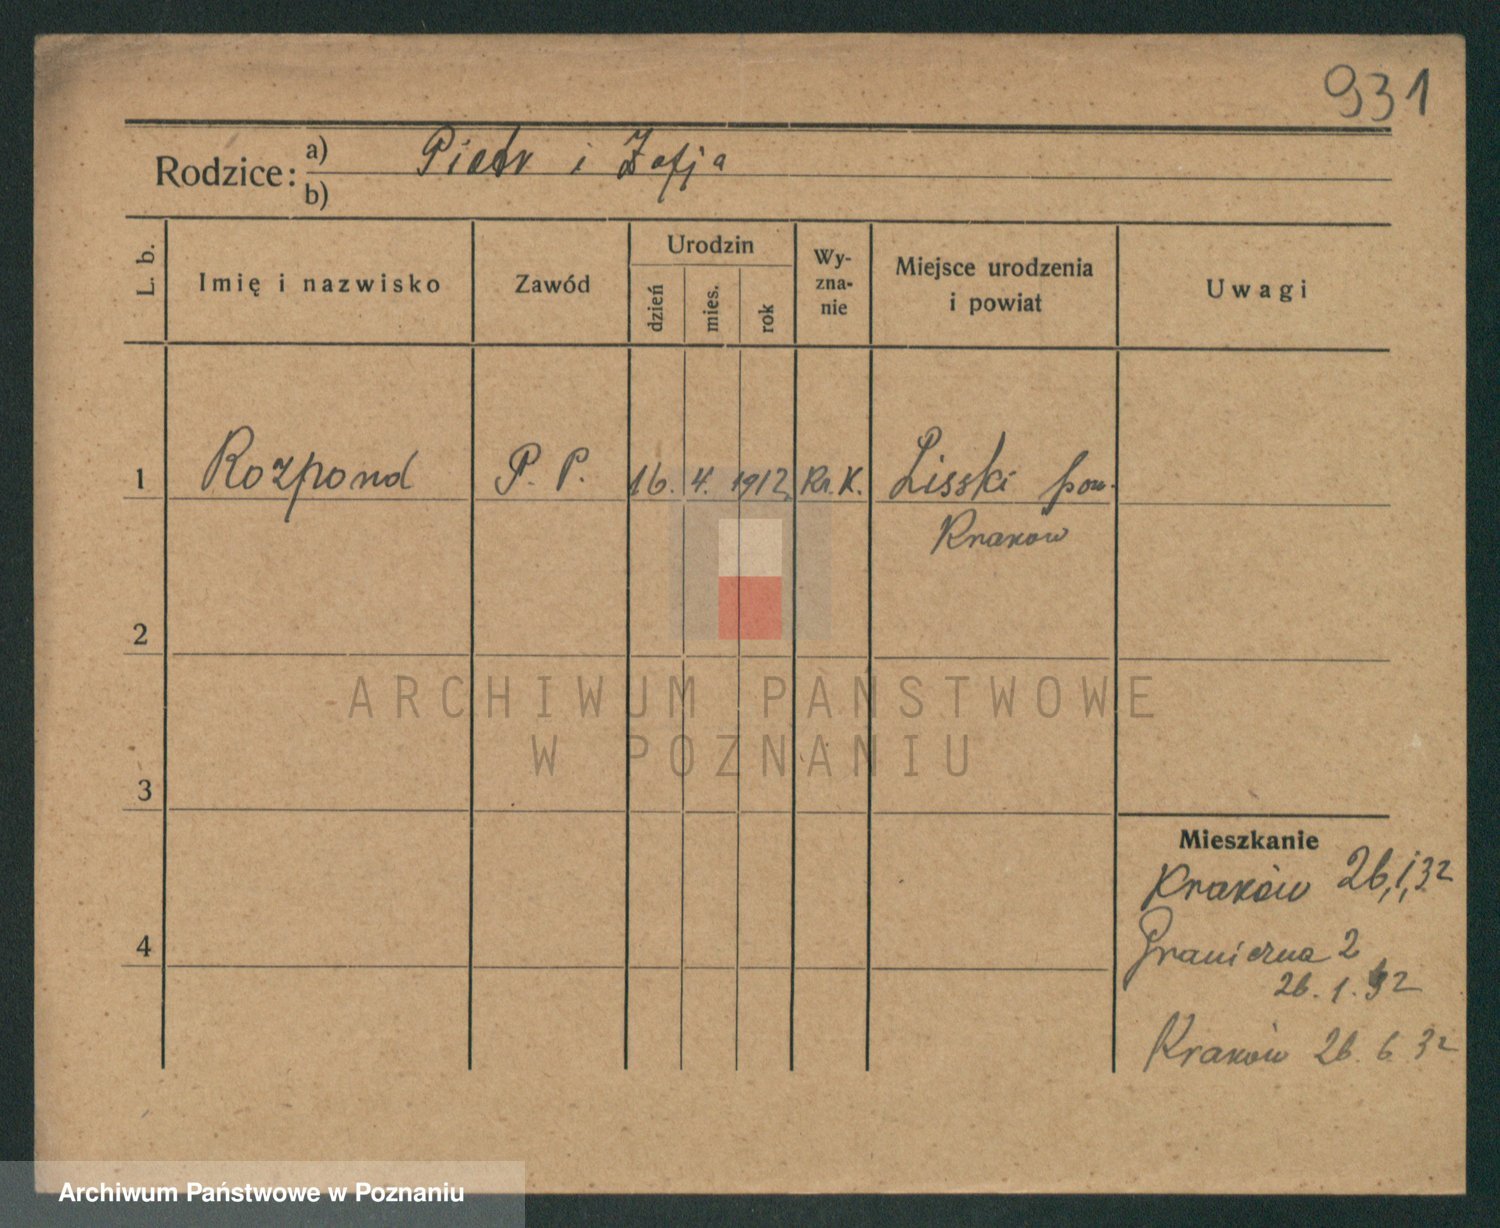 931
Rodzice: a) Piotr i Zofja
b)
L. b.
Imię i nazwisko
Zawód
Urodzin
dzień
mies.
rok
Wy-
zna-
nie
Miejsce urodzenia
i powiat
Uwagi
1 Rozpond P. P. 16. 4. 1912 Rz. K. Lisski pow.
Kraków
2
ARCHIWUM PAŃSTWOWE
W POZNANIU
3
Mieszkanie
Kraków 26,1,32
4
Graniczna 2
26. 1. 32
Kraków 26. 6 32
Archiwum Państwowe w Poznaniu